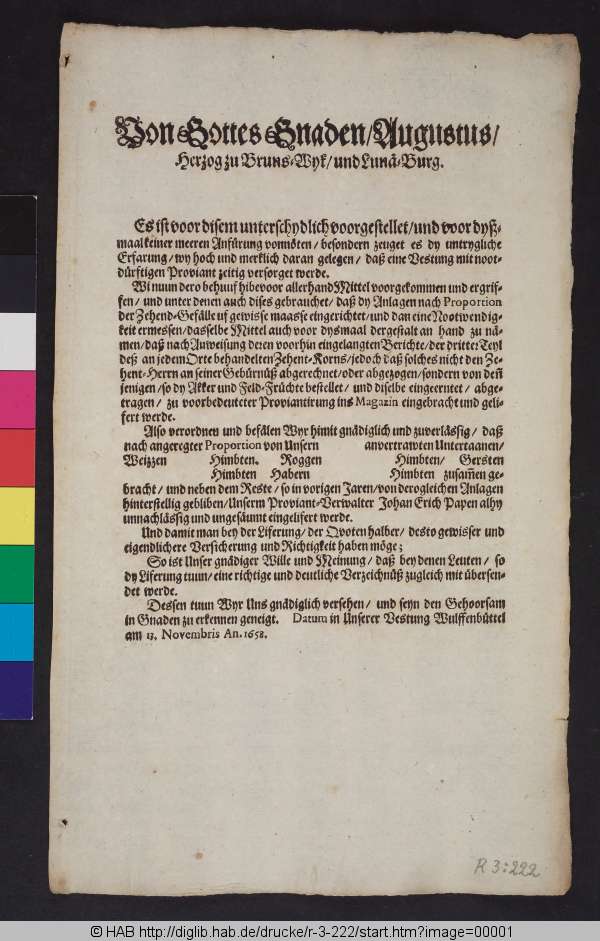 Von Gottes Gnaden/Augustus/
Herzog zu Bruns-Wyk/und Lunä-Burg.
Es ist voor disem unterschydlich voorgestellet/und voor dyß-
maal keiner meeren Anfürung vonnöten/besondern zeuget es dy untrygliche
Erfarung/wy hoch und merklich daran gelegen/daß eine Vestung mit noot-
dürftigen Proviant zeitig versorget werde.
Wi nuun dero behuuf hibevoor allerhand Mittel voorgekommen und ergrif-
fen/und unter denen auch dises gebrauchet/daß dy Anlagen nach Proportion
der Zehend-Gefälle uf gewisse maasse eingerichtet/und dan eine Nootwendig-
keit ermessen/dasselbe Mittel auch voor dysmaal dergestalt an hand zu nä-
men/daß nach Anweisung deren voorhin eingelangten Berichte/der dritte Teyl
deß an jedem Orte behandelten Zehent-Korns/jedoch daß solches nicht den Ze-
hent-Herrn an seiner Gebürnüß abgerechnet/oder abgezogen/sondern von den̄
jenigen/so dy Akker und Feld-Früchte bestellet/und diselbe eingeerntet/abge-
tragen/zu voorbedeuteter Proviantirung ins Magazin eingebracht und geli-
fert werde.
Also verordnen und befälen Wyr himit gnädiglich und zuverlässig/daß
nach angeregter Proportion von Unsern anvertrawten Untertaanen/
Weizzen Himbten. Roggen Himbten/Gersten
Himbten Habern Himbten zusam̄en ge-
bracht/und neben dem Reste/so in vorigen Jaren/von derogleichen Anlagen
hinterstellig gebliben/Unserm Proviant-Verwalter Johan Erich Papen alhy
unnachlässig und ungesäumt eingelifert werde.
Und damit man bey der Liferung/der Qvoten halber/desto gewisser und
eigendlichere Versicherung und Richtigkeit haben möge;
So ist Unser gnädiger Wille und Meinung/daß bey denen Leuten/so
dy Liferung tuun/eine richtige und deutliche Verzeichnüß zugleich mit übersen-
det werde.
Dessen tuun Wyr Uns gnädiglich versehen/und seyn den Gehoorsam
in Gnaden zu erkennen geneigt. Datum in Unserer Vestung Wulffenbüttel
am 13. Novembris An. 1658.
R 3:222
© HAB http://diglib.hab.de/drucke/r-3-222/start.htm?image=00001